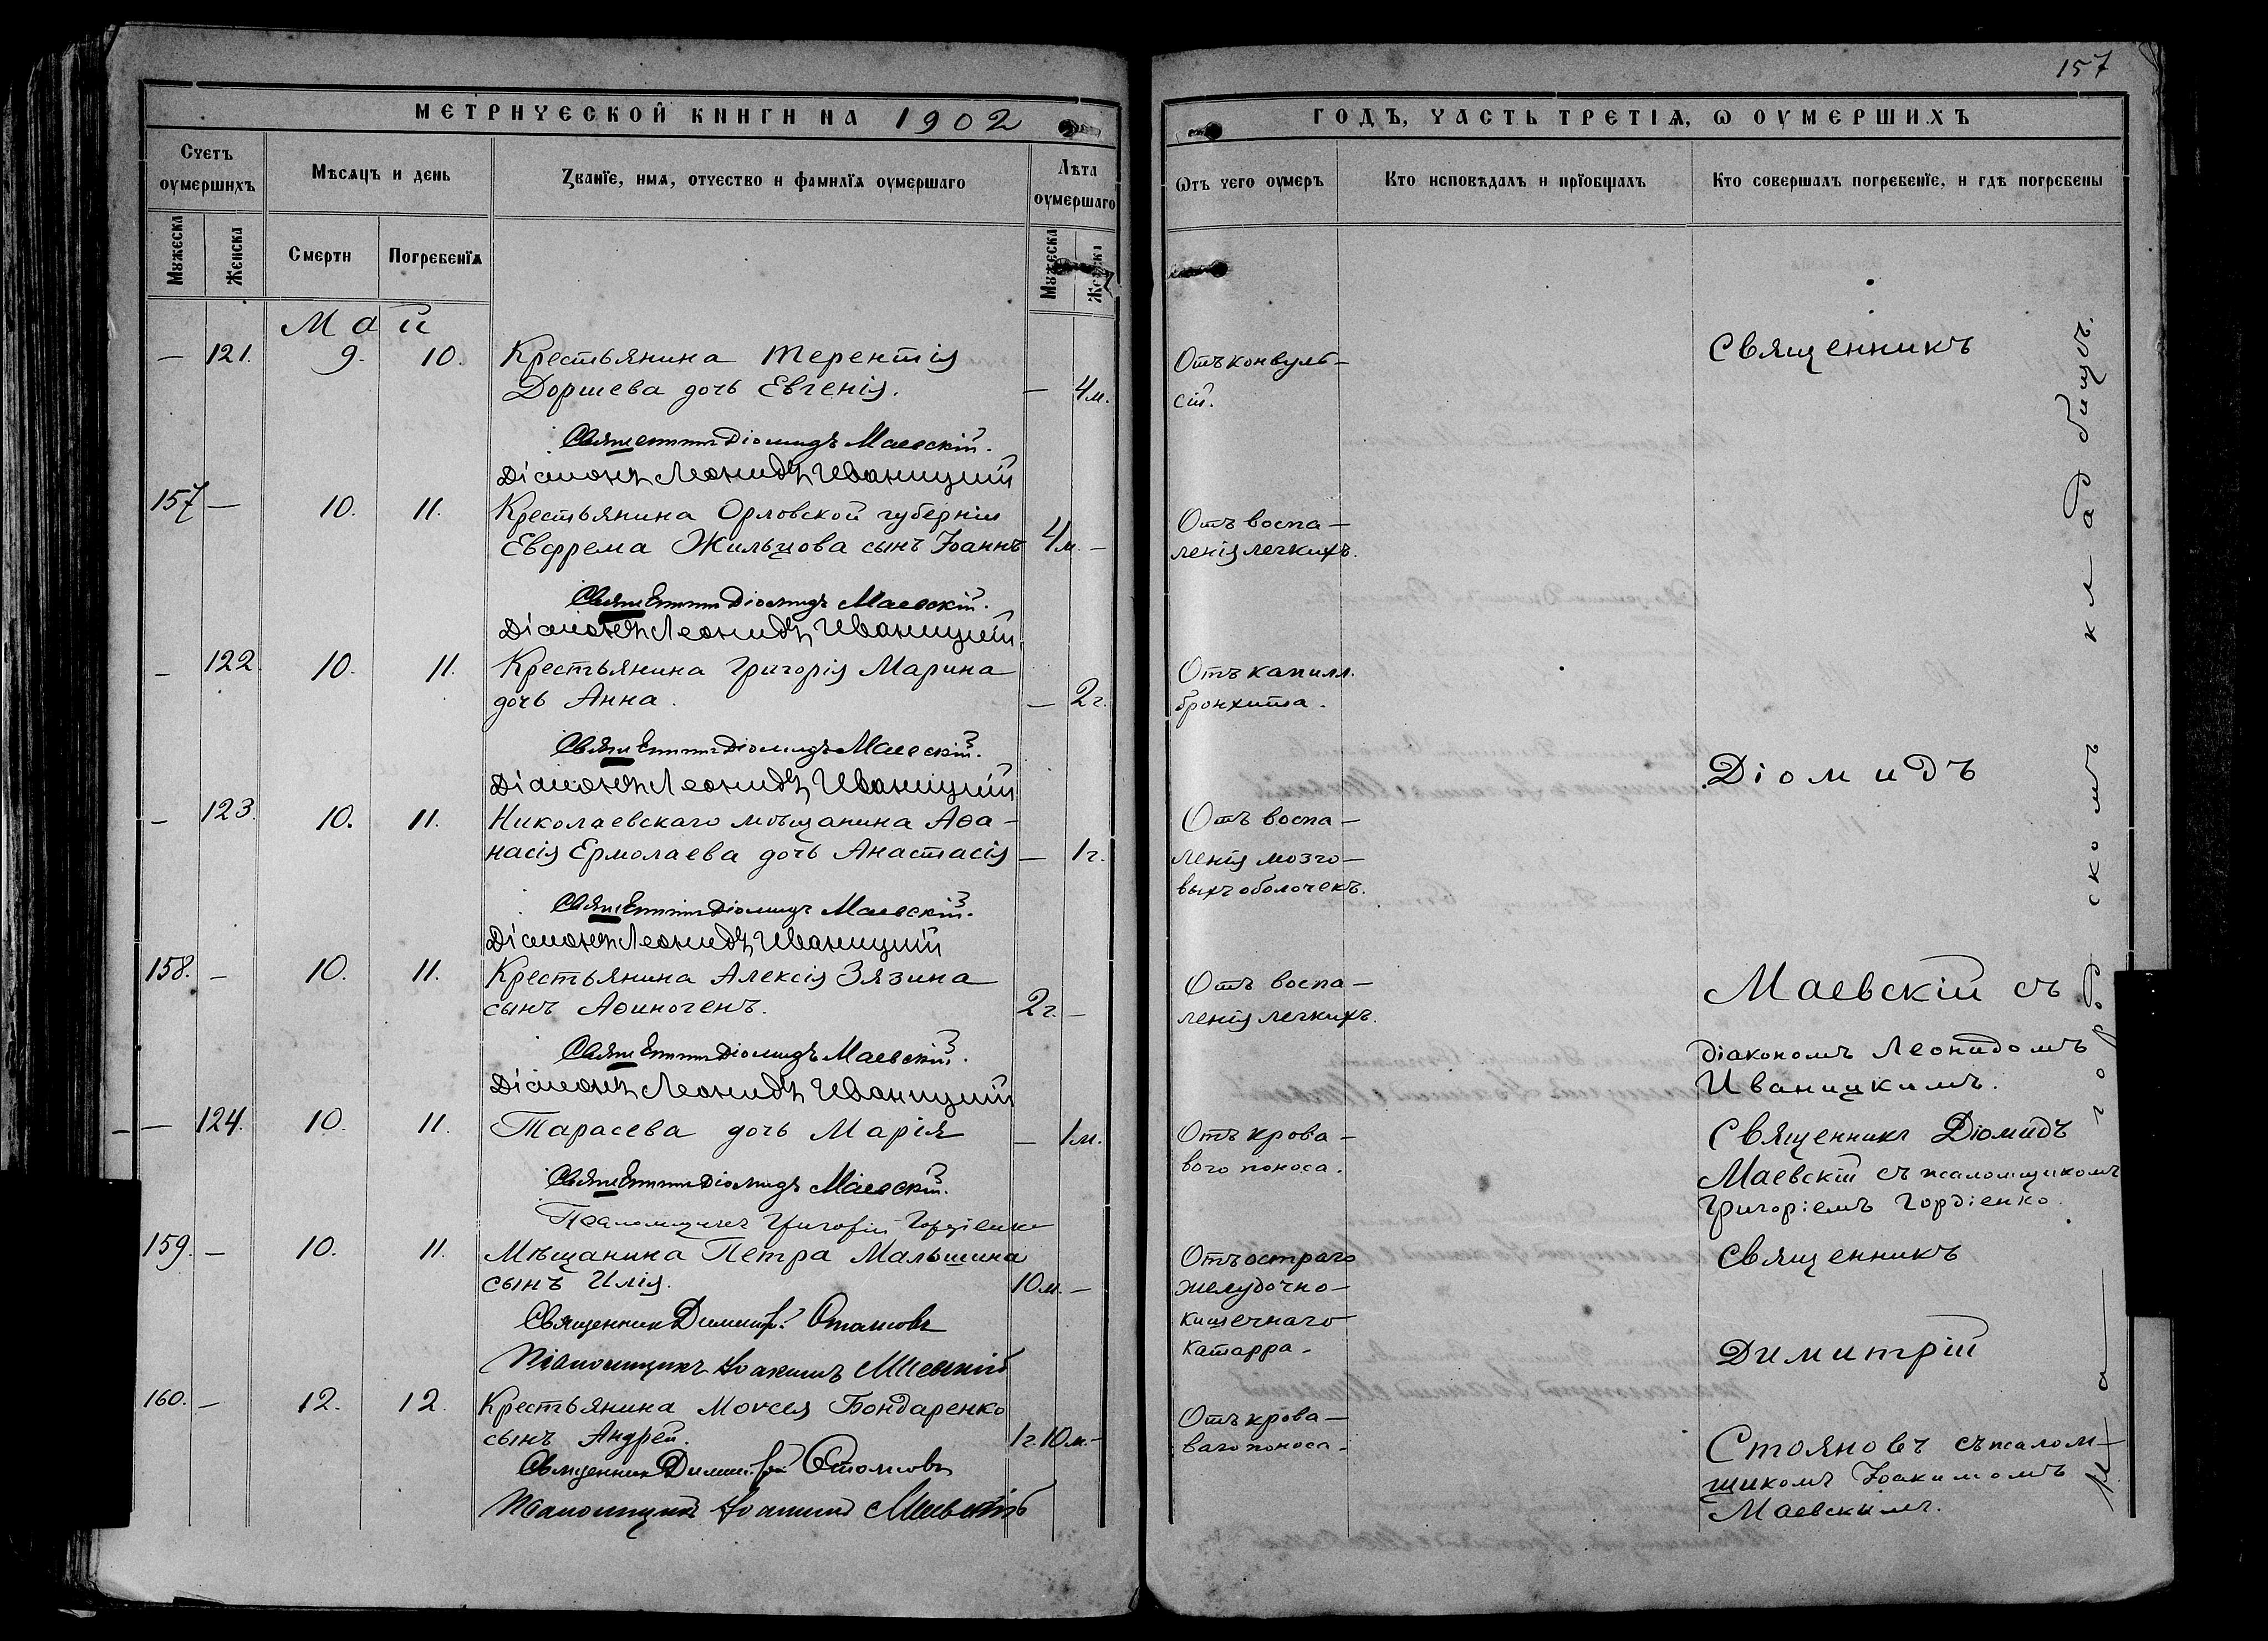 157
МЕТРИЧЕСКОЙ КНИГИ НА 1902
ГОДЪ, ЧАСТЬ ТРЕТІѦ, Ѡ ОУМЕРШИХЪ
Счетъ оумершихъ
Мѣсяцъ и день
Званїе, имѧ, отчество и фамилїѧ оумершаго
Лѣта оумершаго
Ѿтъ чего оумеръ
Кто исповѣдалъ и прїобщалъ
Кто совершалъ погребенїе, и гдѣ погребены
Мужеска
Женска
Смерти
Погребенїѧ
Мужеска
Женска
Май
— 121. 9. 10. Крестьянина Терентія
Доршева дочь Евгенія. — 4 м.
Отъ конвуль-
сій.
Священникъ
Священникъ Діомидъ Маевскій.
Діаконъ Леонидъ Иваницкій
157 — 10. 11. Крестьянина Орловской губерніи
Евфрема Жильцова сынъ Іоаннъ 4 м. —
Отъ воспа-
ленія легкихъ.
Священникъ Діомидъ Маевскій.
Діаконъ Леонидъ Иваницкій
— 122. 10. 11. Крестьянина Григорія Марина
дочь Анна. — 2 г.
Отъ капилл.
бронхита.
Священникъ Діомидъ Маевскій.
Діаконъ Леонидъ Иваницкій
Діомидъ
— 123. 10. 11. Николаевскаго мѣщанина Аѳа-
насія Ермолаева дочь Анастасія — 1 г.
Отъ воспа-
ленія мозго-
выхъ оболочекъ.
Священникъ Діомидъ Маевскій.
Діаконъ Леонидъ Иваницкій
158. — 10. 11. Крестьянина Алексія Зязина
сынъ Аѳиногенъ. 2 г. —
Отъ воспа-
ленія легкихъ.
Маевскій съ
діакономъ Леонидомъ
Иваницкимъ.
Священникъ Діомидъ Маевскій.
Діаконъ Леонидъ Иваницкій
— 124. 10. 11. Тарасева дочь Марія — 1 м.
Отъ крова-
вого поноса.
Священникъ Діомидъ
Маевскій съ псаломщикомъ
Григоріемъ Гордіенко.
Священникъ Діомидъ Маевскій.
Псаломщикъ Григорій Гордіенко
159. — 10. 11. Мѣщанина Петра Мальшина
сынъ Илія. 10 м. —
Отъ остраго
желудочно-
кишечнаго
катарра.
Священникъ
Священникъ Димитрій Стояновъ
Псаломщикъ Іоакимъ Маевскій
Димитрій
160. — 12. 12. Крестьянина Моѵсея Бондаренко
сынъ Андрей. 1 г. 10 м. —
Отъ крова-
ваго поноса.
Священникъ Димитрій Стояновъ
Псаломщикъ Іоакимъ Маевскій
Стояновъ съ псалом-
щикомъ Іоакимомъ
Маевскимъ.
На городскомъ кладбищѣ.